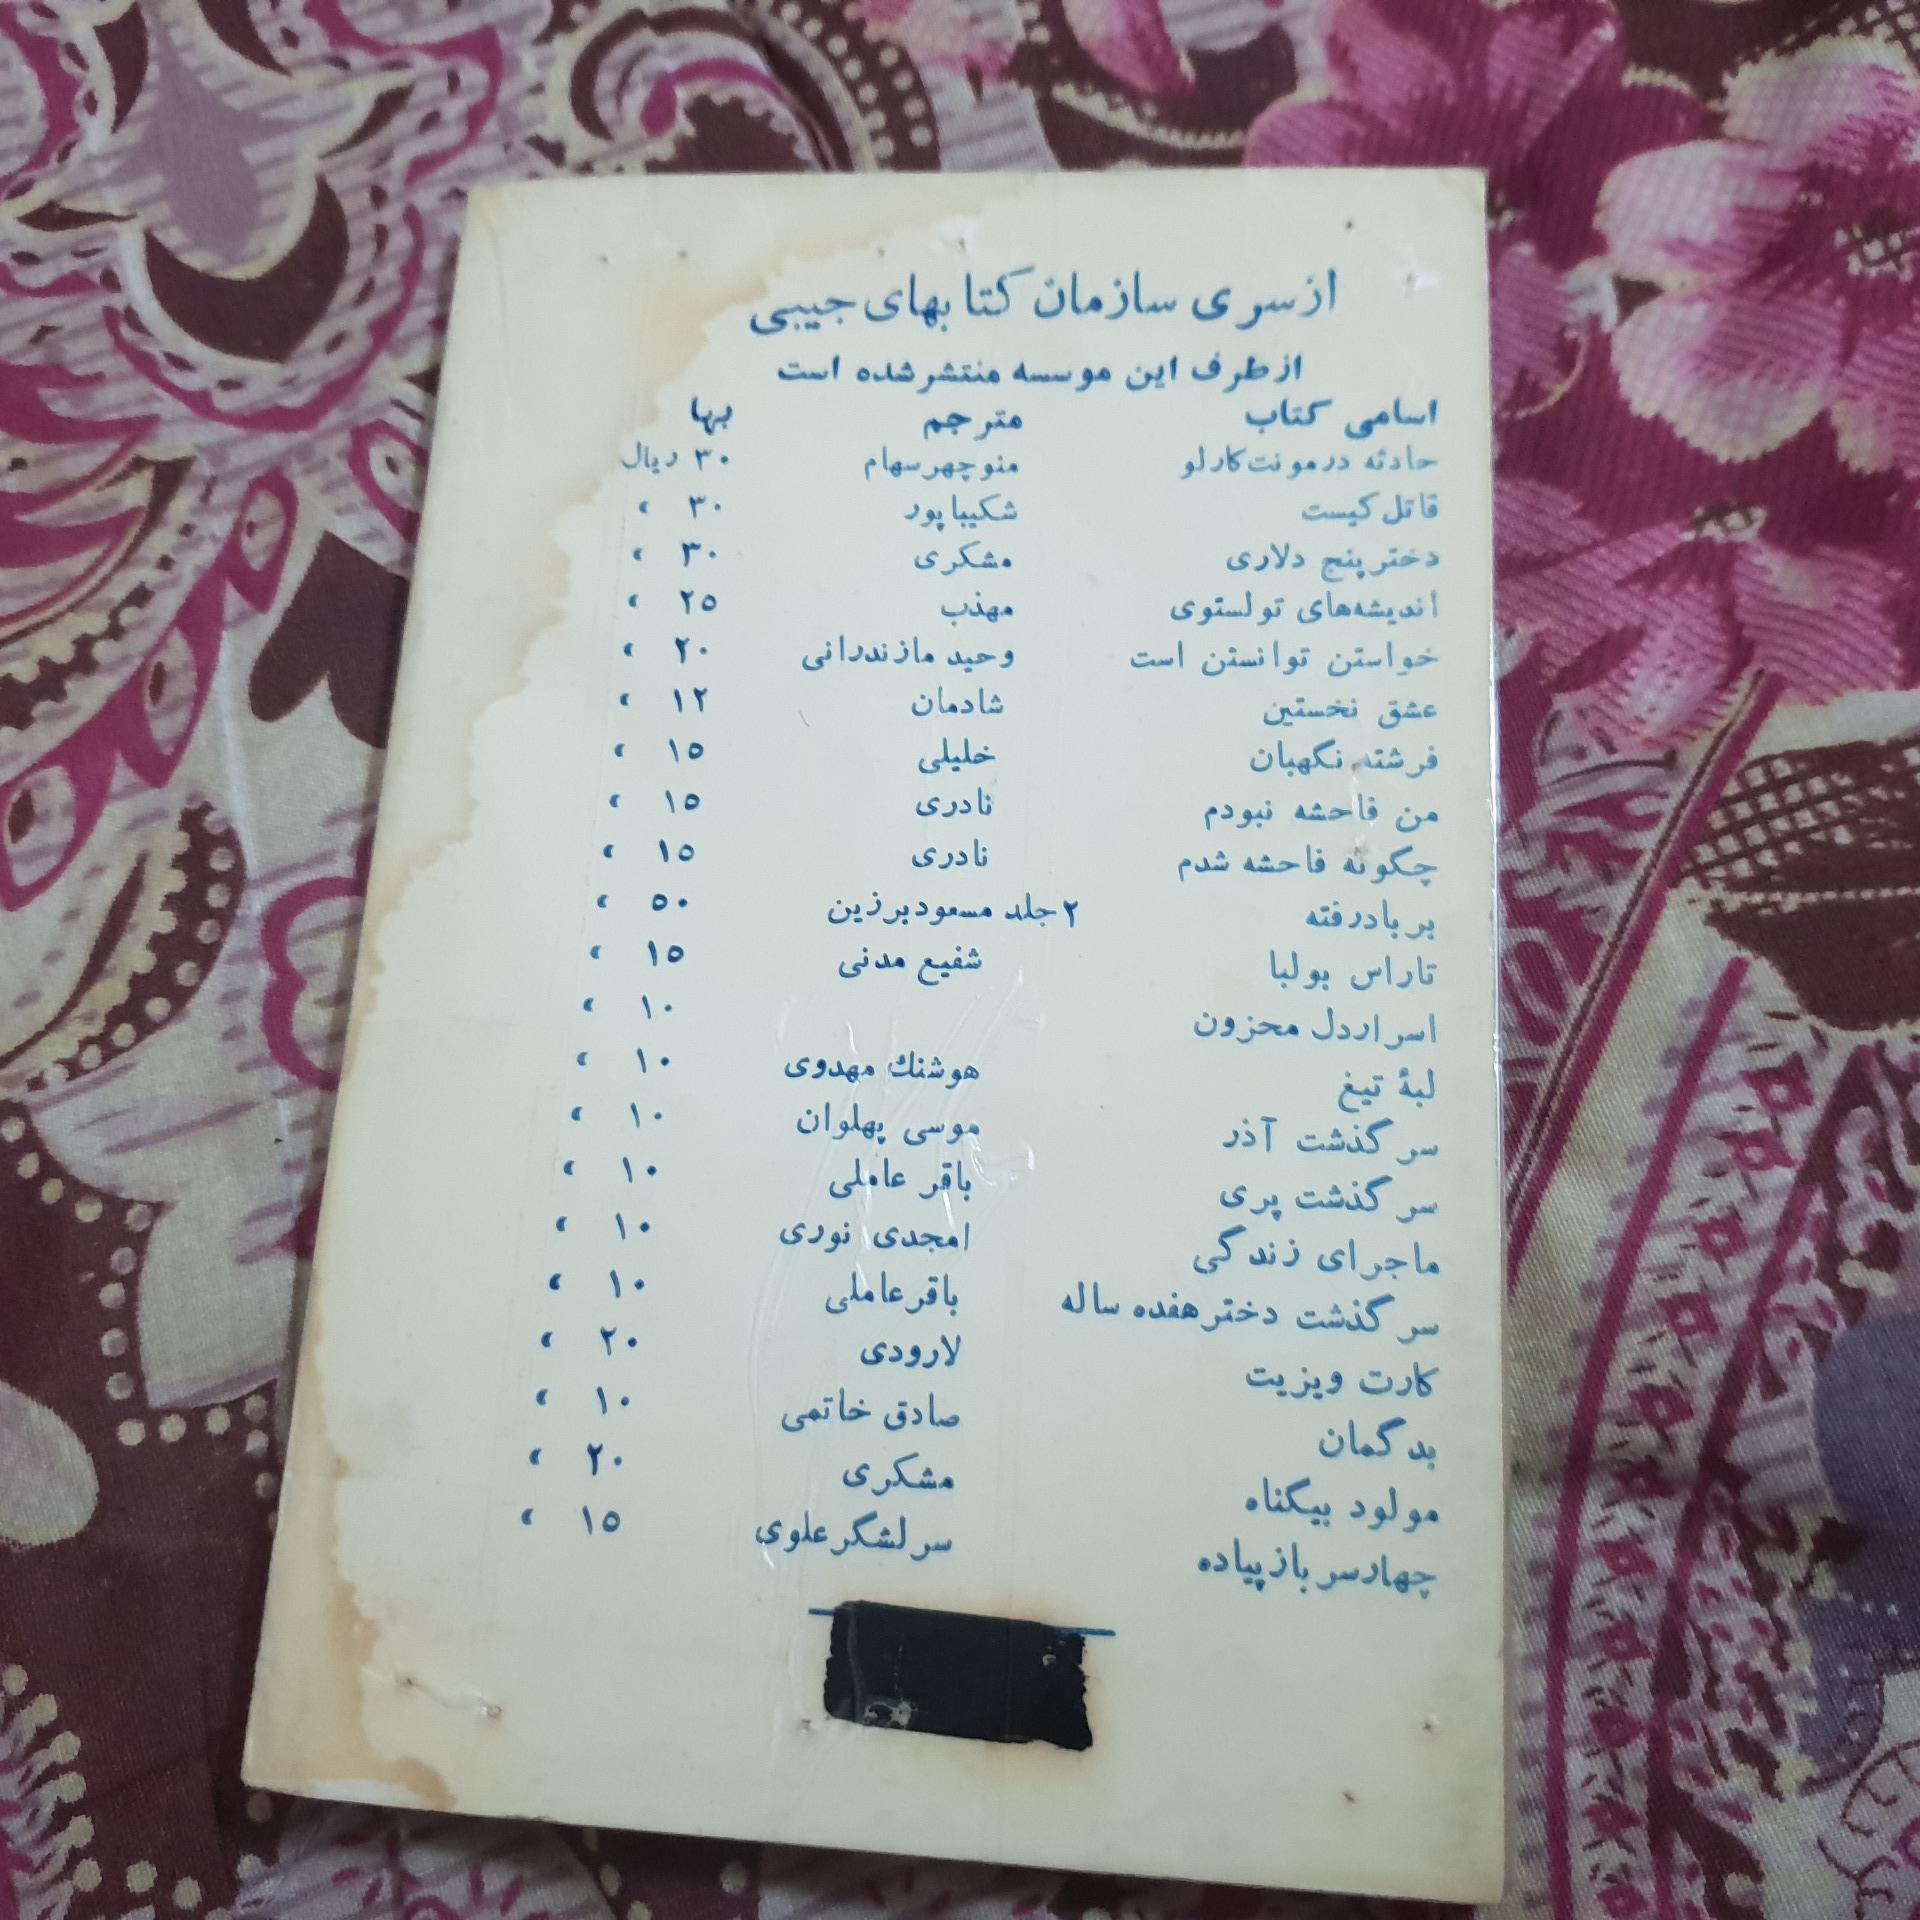 از سری سازمان کتابهای جیبی
از طرف این موسسه منتشر شده است
اسامی کتاب مترجم بها
حادثه در مونت‌کارلو منوچهر سهام ۳۰ ریال
قاتل کیست شکیباپور ۳۰ «
دختر پنج دلاری مشکری ۳۰ «
اندیشه‌های تولستوی مهذب ۲۵ «
خواستن توانستن است وحید مازندرانی ۲۰ «
عشق نخستین شادمان ۱۲ «
فرشته نگهبان خلیلی ۱۵ «
من فاحشه نبودم نادری ۱۵ «
چگونه فاحشه شدم نادری ۱۵ «
بر باد رفته ۲ جلد مسعود برزین ۵۰ «
تاراس بولبا شفیع مدنی ۱۵ «
اسرار دل محزون ۱۰ «
لبهٔ تیغ هوشنك مهدوی ۱۰ «
سر گذشت آذر موسی پهلوان ۱۰ «
سر گذشت پری باقر عاملی ۱۰ «
ماجرای زندگی امجدی نوری ۱۰ «
سر گذشت دختر هفده ساله باقر عاملی ۱۰ «
کارت ویزیت لارودی ۲۰ «
بد گمان صادق خاتمی ۱۰ «
مولود بیگناه مشکری ۲۰ «
چهار سر باز پیاده سر لشگر علوی ۱۵ «